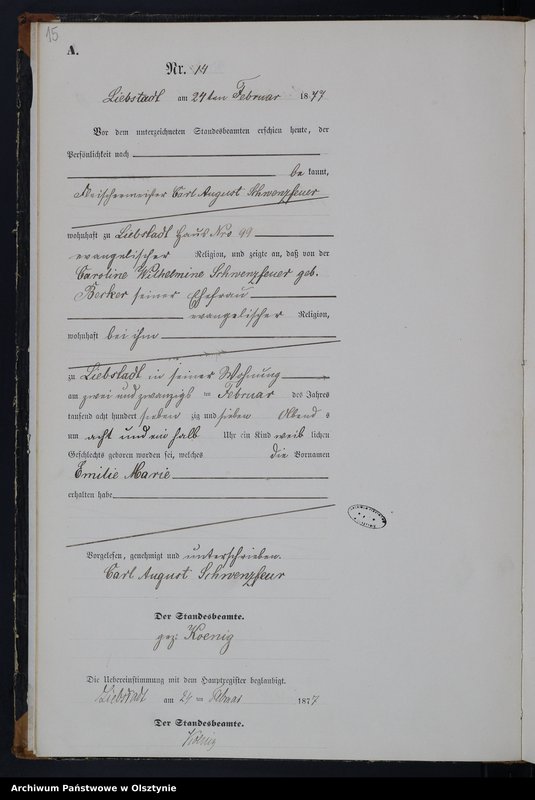 15
A.
Nr. 14
Liebstadt am 24ten Februar 1877
Vor dem unterzeichneten Standesbeamten erschien heute, der
Persönlichkeit nach
bekannt,
Fleischermeister Carl August Schwenzfeuer
wohnhaft zu Liebstadt Haus Nro 99
evangelischer Religion, und zeigte an, daß von der
Caroline Wilhelmine Schwenzfeuer geb.
Becker seiner Ehefrau
evangelischer Religion,
wohnhaft bei ihm
zu Liebstadt in seiner Wohnung
am zwei und zwanzigs ten Februar des Jahres
tausend acht hundert sieben zig und sieben Abend s
um acht und ein halb Uhr ein Kind weib lichen
Geschlechts geboren worden sei, welches die Vornamen
Emilie Marie
erhalten habe
Vorgelesen, genehmigt und unterschrieben.
Carl August Schwenzfeur
Der Standesbeamte.
gez: Koenig
Die Uebereinstimmung mit dem Hauptregister beglaubigt.
Liebstadt am 24 ten Februar 1877
Der Standesbeamte.
Koenig
Archiwum Państwowe w Olsztynie